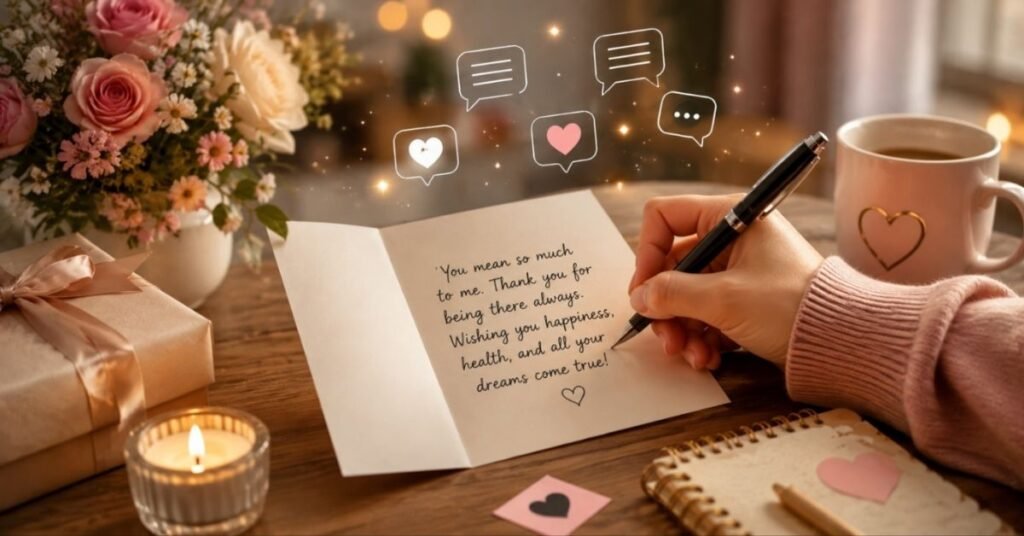 'You mean so much
to me. Thank you for
being there always.
Wishing you happiness,
health, and all your
dreams come true!